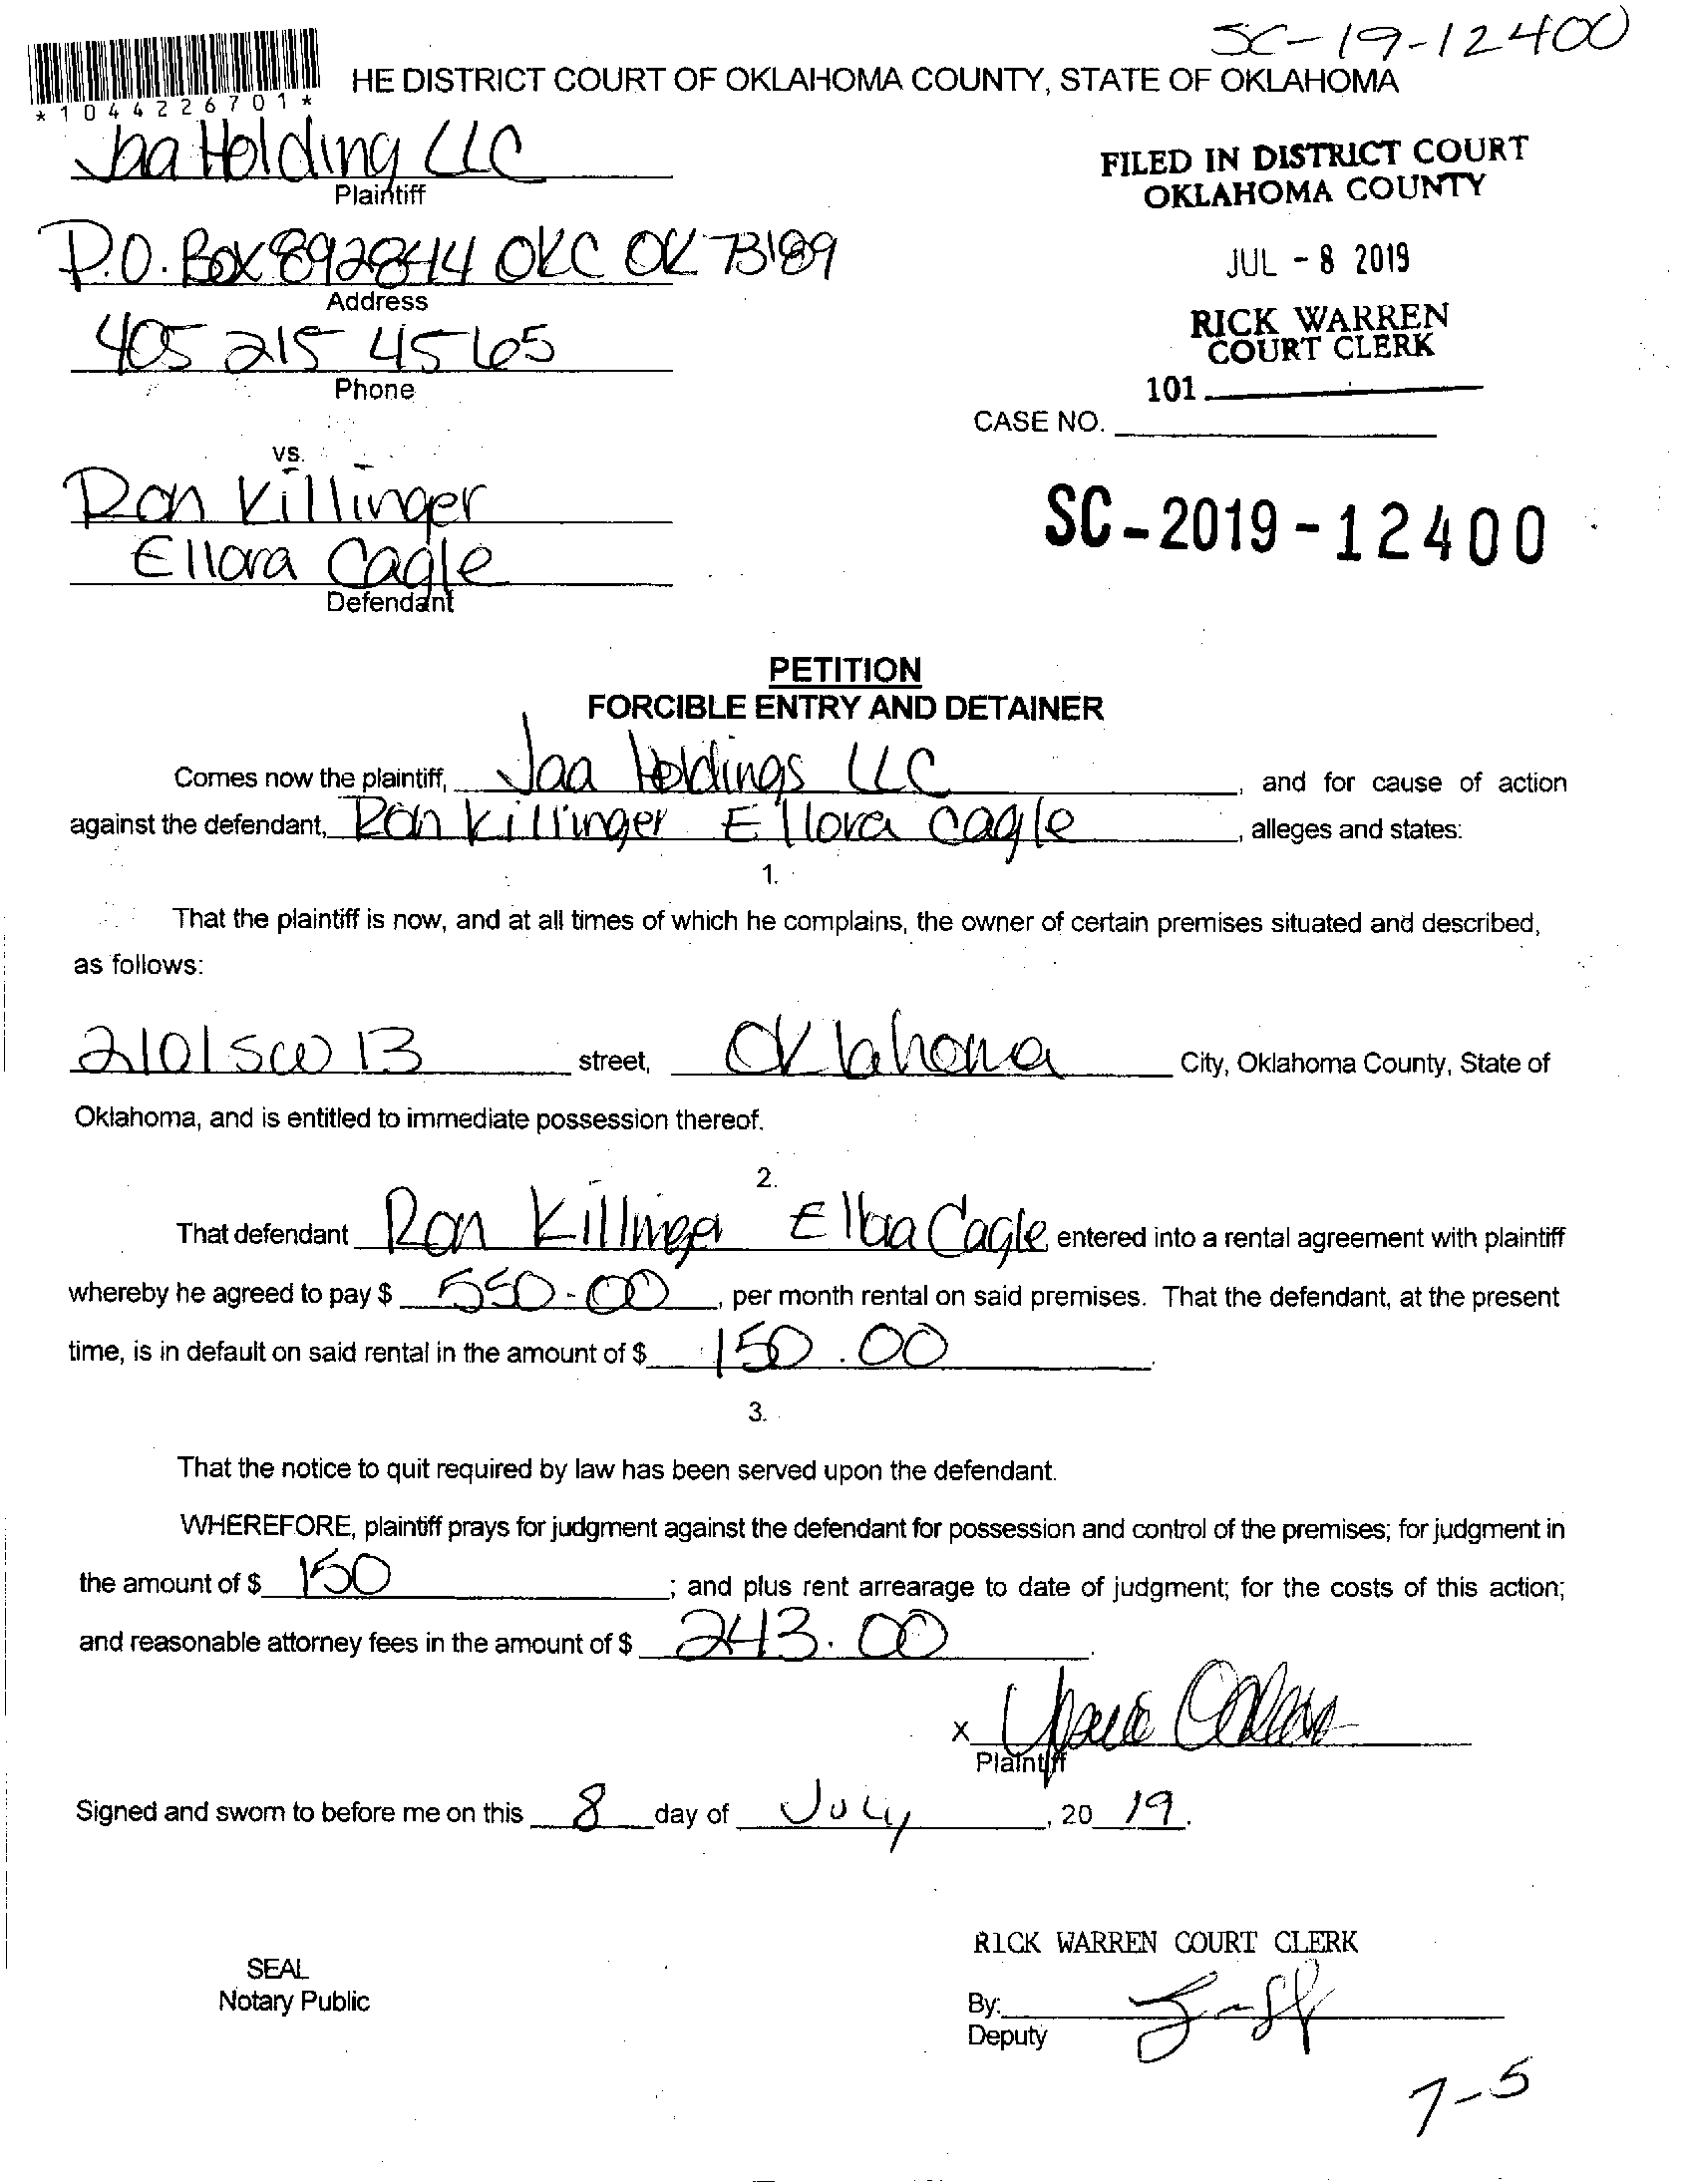 SC-19-12400
HE DISTRICT COURT OF OKLAHOMA COUNTY, STATE OF OKLAHOMA
*1044226701*
Jaa Holding LLC
Plaintiff
FILED IN DISTRICT COURT
OKLAHOMA COUNTY
P.O. Box 892844 OKC OK 73189
Address
JUL - 8 2019
405 215 4565
Phone
RICK WARREN
COURT CLERK
101
CASE NO.
vs.
Ron Killinger
Ellora Cagle
Defendant
SC-2019-12400
PETITION
FORCIBLE ENTRY AND DETAINER
Comes now the plaintiff, Jaa Holdings LLC, and for cause of action
against the defendant, Ron Killinger Ellora Cagle, alleges and states:
1.
That the plaintiff is now, and at all times of which he complains, the owner of certain premises situated and described,
as follows:
2101 SW 13 street, Oklahoma City, Oklahoma County, State of
Oklahoma, and is entitled to immediate possession thereof.
2.
That defendant Ron Killinger Ellora Cagle entered into a rental agreement with plaintiff
whereby he agreed to pay $ 550.00, per month rental on said premises. That the defendant, at the present
time, is in default on said rental in the amount of $ 150.00.
3.
That the notice to quit required by law has been served upon the defendant.
WHEREFORE, plaintiff prays for judgment against the defendant for possession and control of the premises; for judgment in
the amount of $ 150; and plus rent arrearage to date of judgment; for the costs of this action;
and reasonable attorney fees in the amount of $ 243.00.
X
Plaintiff
Signed and sworn to before me on this 8 day of July, 2019.
RICK WARREN COURT CLERK
SEAL
Notary Public
By:
Deputy
7-5